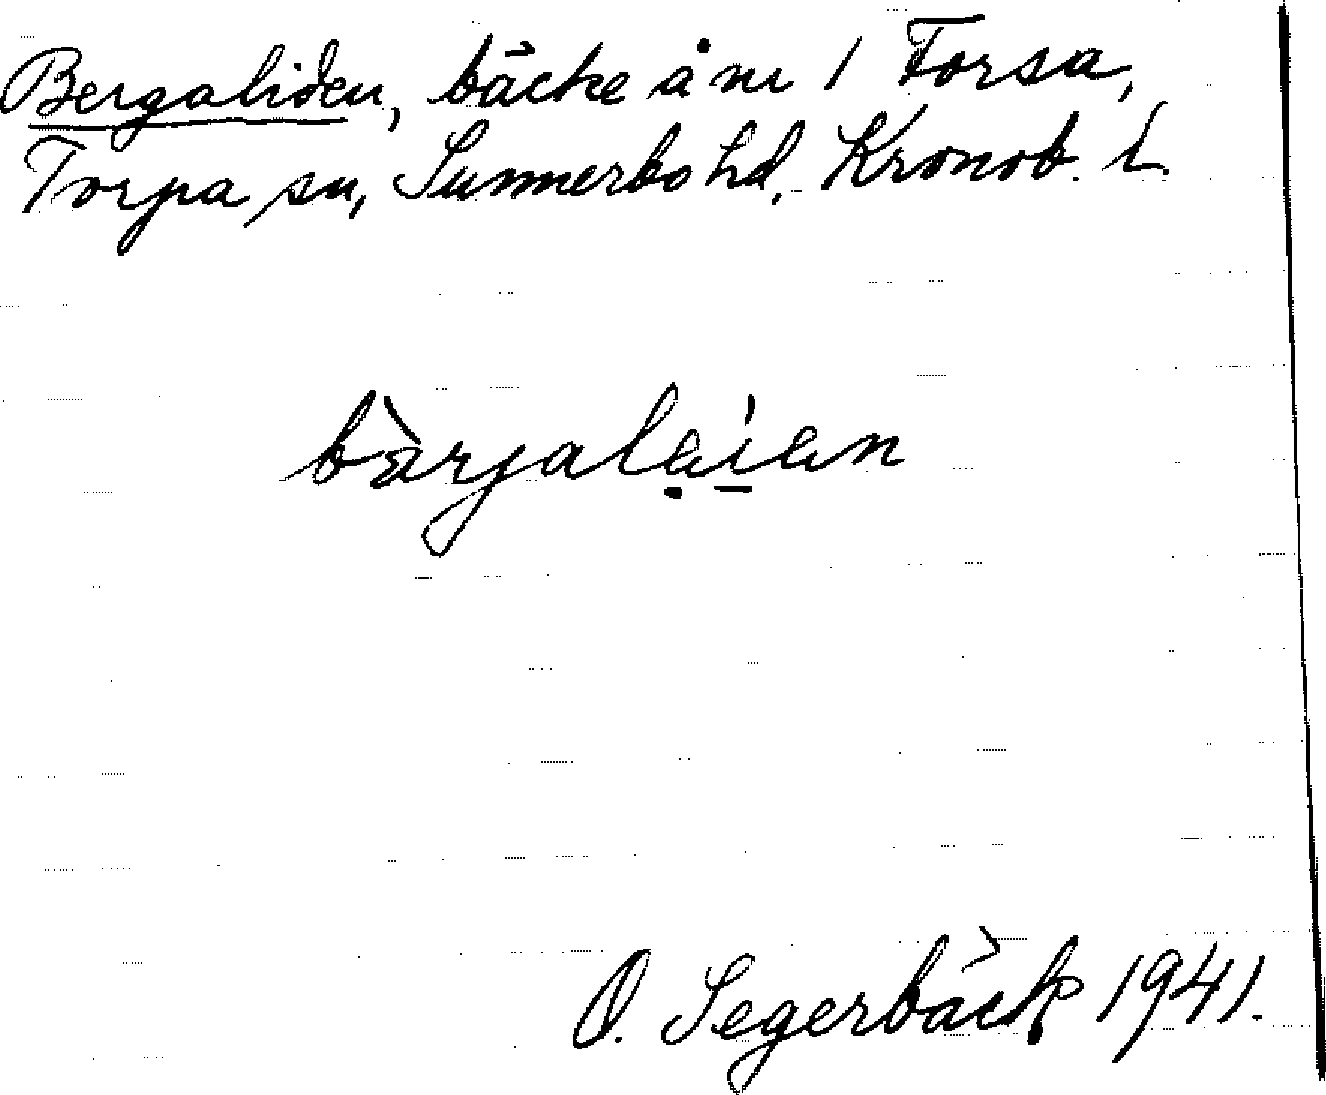 Bergaliden, bäcke å nr 1 Forsa,
Torpa sn, Sunnerbo hd, Kronob. L
bàrjalaien
O. Segerbäck 1941.